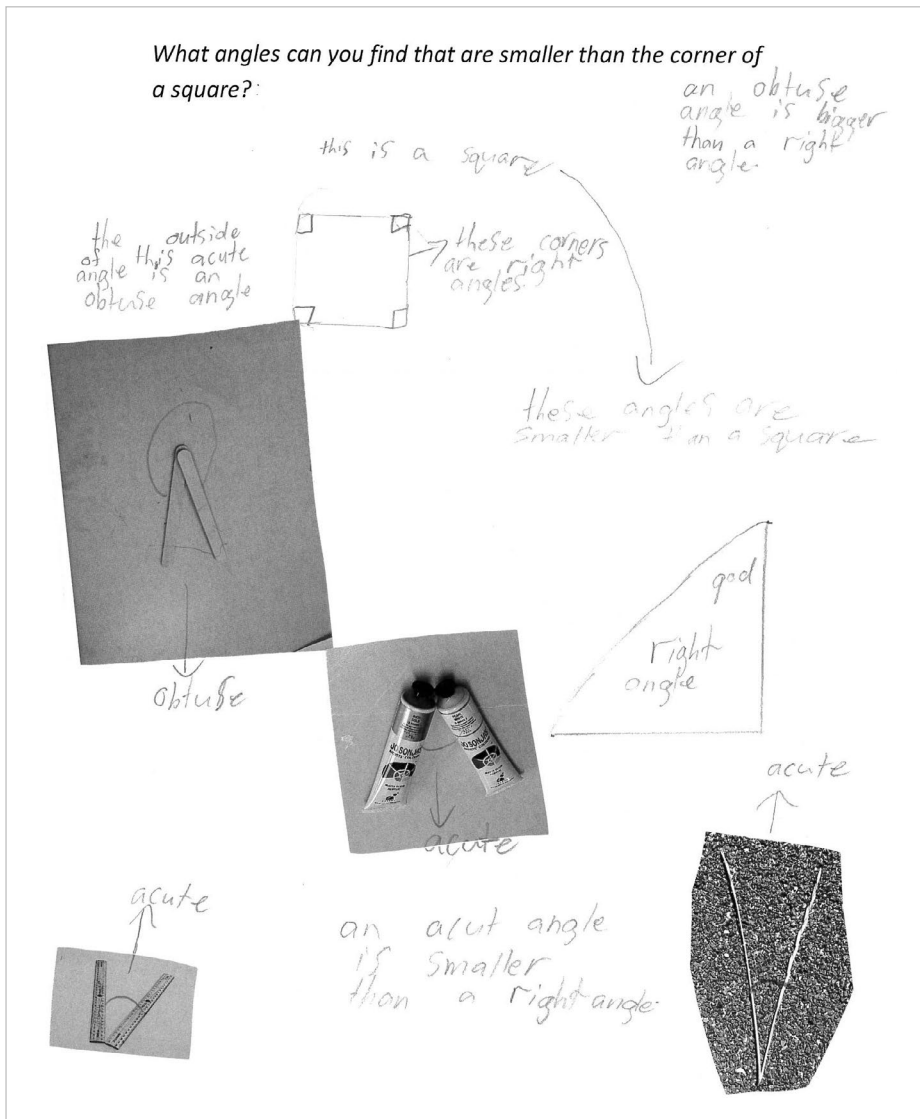 What angles can you find that are smaller than the corner of
a square?
an obtuse
angle is bigger
than a right
angle.
this is a square
the outside
of this acute
angle is an
obtuse angle
these corners
are right
angles.
these angles are
smaller than a square
god
right
angle
obtuse
acute
acute
acute
an acut angle
is smaller
than a right angle.